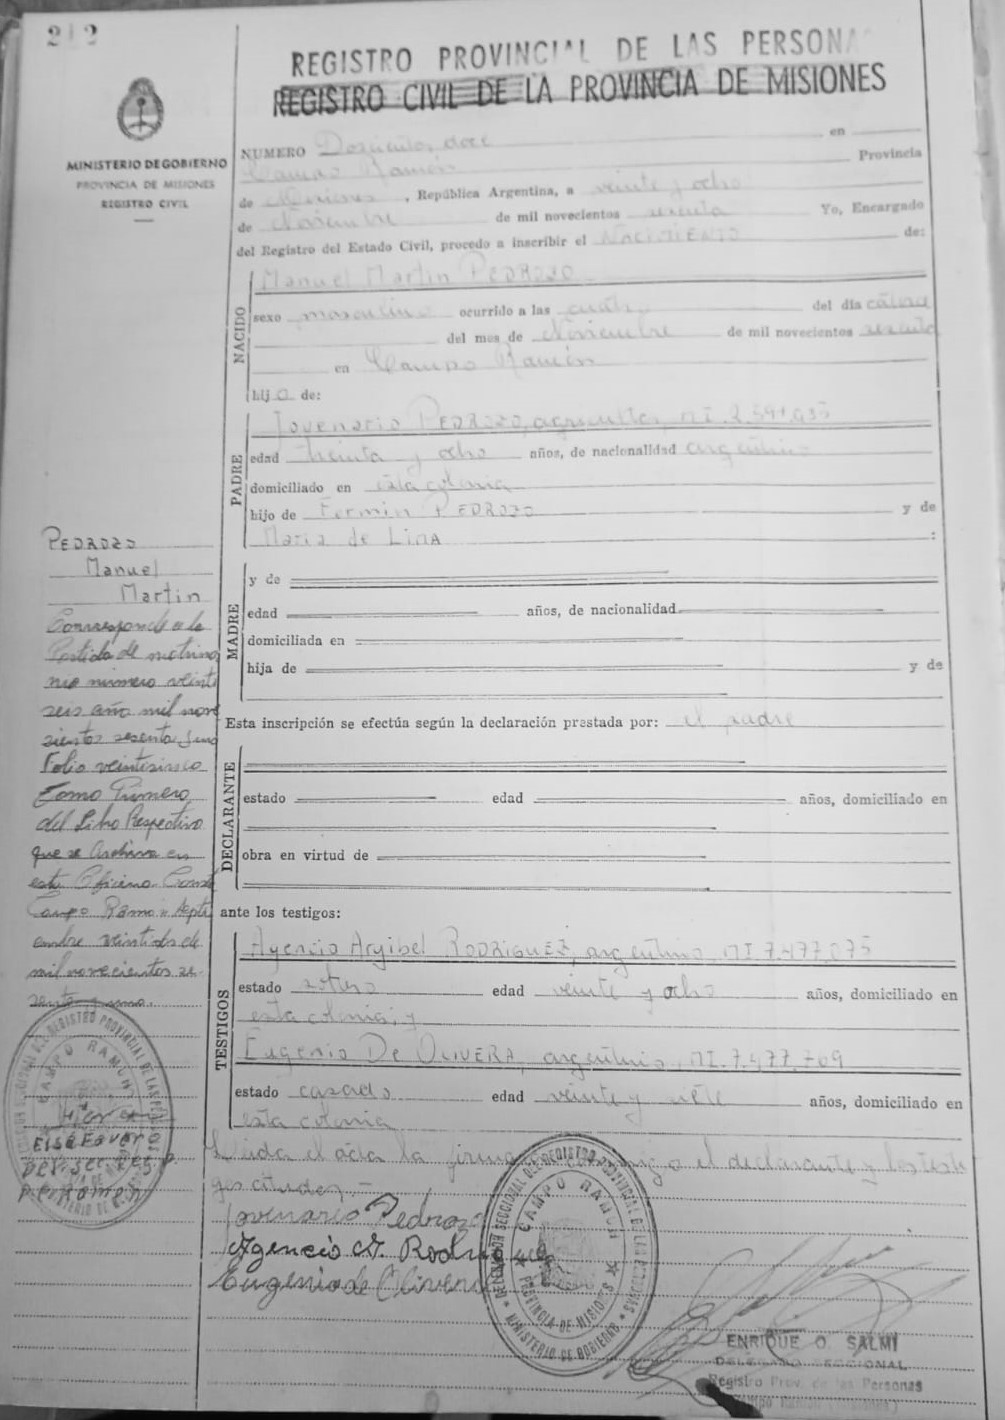 212
REGISTRO PROVINCIAL DE LAS PERSONAS
REGISTRO CIVIL DE LA PROVINCIA DE MISIONES
MINISTERIO DE GOBIERNO
PROVINCIA DE MISIONES
REGISTRO CIVIL
NUMERO Doscientos doce en
Campo Ramón Provincia
de Misiones, República Argentina, a veinte y ocho
de Noviembre de mil novecientos sesenta Yo, Encargado
del Registro del Estado Civil, procedo a inscribir el NACIMIENTO de:
NACIDO
Manuel Martin PEDROZO
sexo masculino ocurrido a las cuatro del día catorce
del mes de Noviembre de mil novecientos sesenta
en Campo Ramón
hijo de:
PADRE
Jovenario PEDROZO, agricultor, MI.2.591.035
edad treinta y ocho años, de nacionalidad argentino
domiciliado en esta colonia
hijo de Fermin PEDROZO y de
Maria de LIMA :
MADRE
y de
edad años, de nacionalidad
domiciliada en
hija de y de
Esta inscripción se efectúa según la declaración prestada por: el padre
DECLARANTE
estado edad años, domiciliado en
obra en virtud de
ante los testigos:
TESTIGOS
Agencio Argibel RODRIGUEZ, argentino, MI 7.477.075
estado soltero edad veinte y ocho años, domiciliado en
esta colonia; y
Eugenio De OLIVERA, argentino, MI.7.477.709
estado casado edad veinte y siete años, domiciliado en
esta colonia
Leida el acta la firma el declarante y los testi
gos citados.-
Jovenario Pedrozo
Agencio A. Rodriguez
Eugenio de Olivera
PEDROZO
Manuel
Martin
Corresponde a la
Partida de matrimo
nio número veinti
seis año mil nove
sientos sesenta y uno
Folio veintisinco
Tomo Primero
del Libro Respectivo
que se Archiva en
esta Oficina. Conste
Campo Ramón Septi
embre veintidos de
mil novecientos se
senta y uno.
DELEGACION SECCIONAL DEL REGISTRO PROVINCIAL DE LAS PERSONAS
CAMPO RAMON
PROVINCIA DE MISIONES
MINISTERIO DE GOBIERNO
DELEGACION SECCIONAL DEL REGISTRO PROVINCIAL DE LAS PERSONAS
CAMPO RAMON
PROVINCIA DE MISIONES
MINISTERIO DE GOBIERNO
ENRIQUE O. SALMI
DELEGADO SECCIONAL
Registro Prov. de las Personas